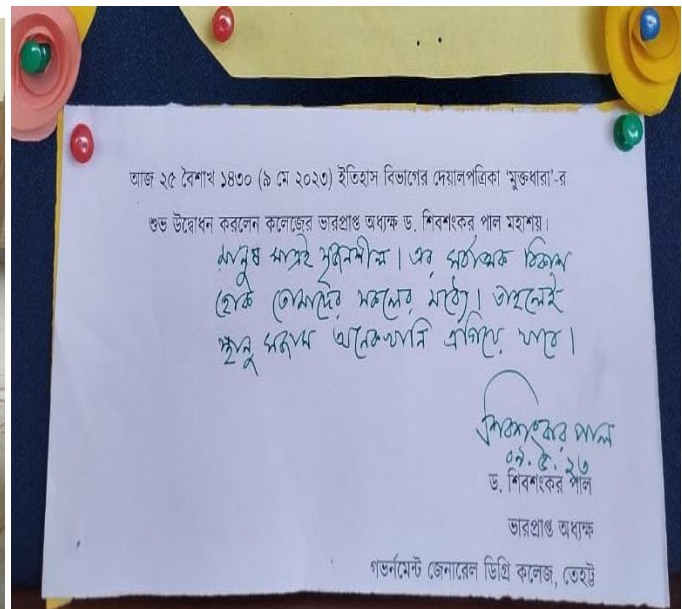 আজ ২৫ বৈশাখ ১৪৩০ (৯ মে ২০২৩) ইতিহাস বিভাগের দেয়ালপত্রিকা ‘মুক্তধারা’-র
শুভ উদ্বোধন করলেন কলেজের ভারপ্রাপ্ত অধ্যক্ষ ড. শিবশংকর পাল মহাশয়।
মানুষ মাত্রই সৃজনশীল। এর সর্বাত্মক বিকাশ
হোক তোমাদের সকলের মধ্যে। তাহলেই
স্থানু সমাজ অনেকখানি এগিয়ে যাবে।
শিবশংকর পাল
০৯.৫.২৩
ড. শিবশংকর পাল
ভারপ্রাপ্ত অধ্যক্ষ
গভর্নমেন্ট জেনারেল ডিগ্রি কলেজ, তেহট্ট